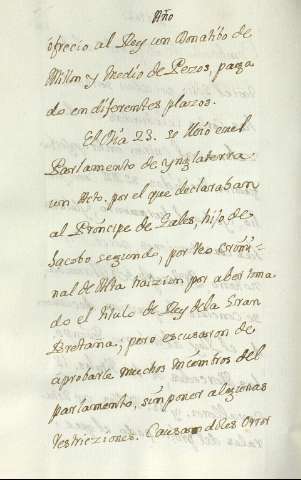 Año
ofrecio al Rey un Donatibo de
Millon y Medio de Pezos, paga
do en diferentes plazos.
El Dia 23. se hizo en el
Parlamento de ynglaterra
un Acto. por el que declaraban
al Principe de Gales, hijo de
Jacobo segundo, por Reo Crimi=
nal de Alta traizion por aber toma
do el titulo de Rey dela Gran
Bretaña; pero escusaron de
aprobarle muchos miembros del
parlamento, sin poner algunas
restricziones. Causandoles orror